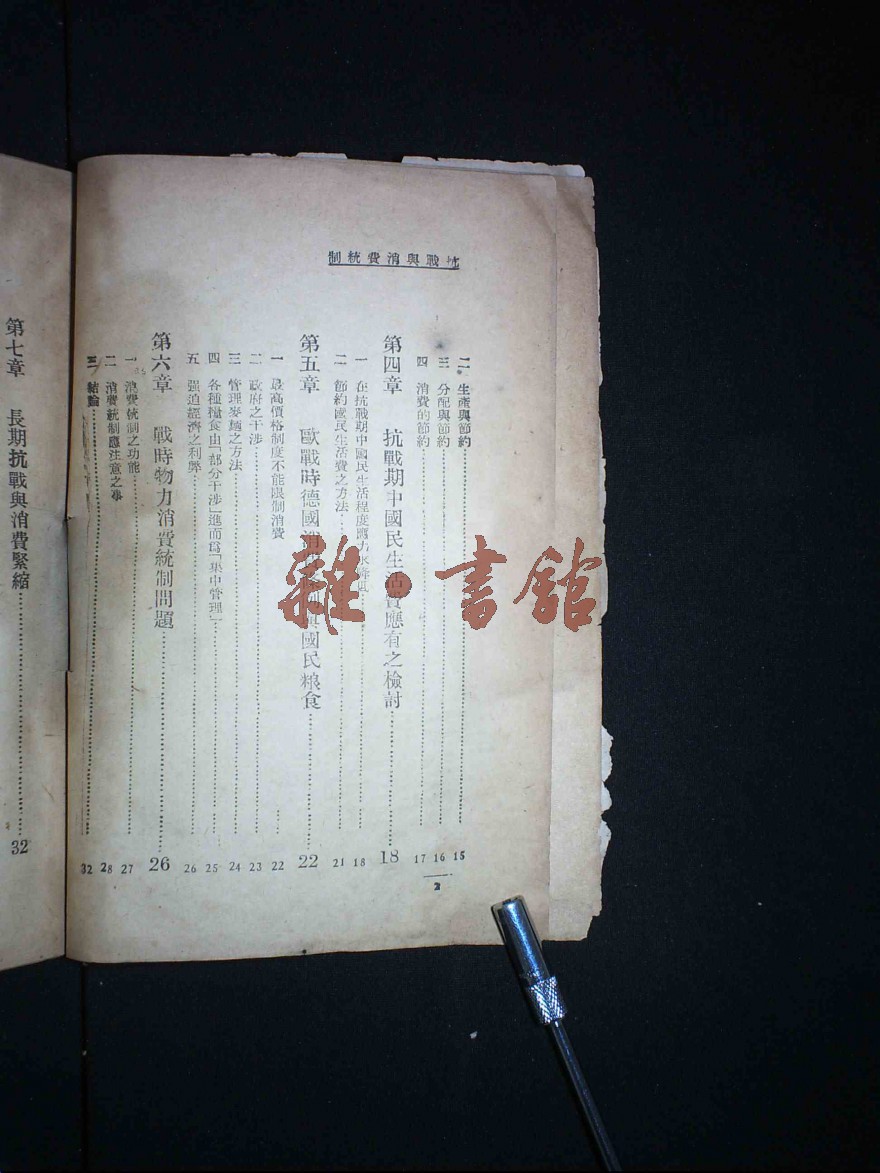 抗戰與消費統制
二 生產與節約……15
三 分配與節約……16
四 消費的節約……17
第四章 抗戰期中國民生活費應有之檢討……18
一 在抗戰期中國民生活程度應力求降低……18
二 節約國民生活費之方法……21
第五章 歐戰時德國消費 與國民粮食……22
一 最高價格制度不能限制消費……22
二 政府之干涉……23
三 管理麥麵之方法……24
四 各種糧食由「部分干涉」進而爲「集中管理」……25
五 强迫經濟之利弊……26
第六章 戰時物力消費統制問題……26
一 消費統制之功能……27
二 消費統制應注意之事……28
三 結論……32
2
第七章 長期抗戰與消費緊縮……32
雜·書館